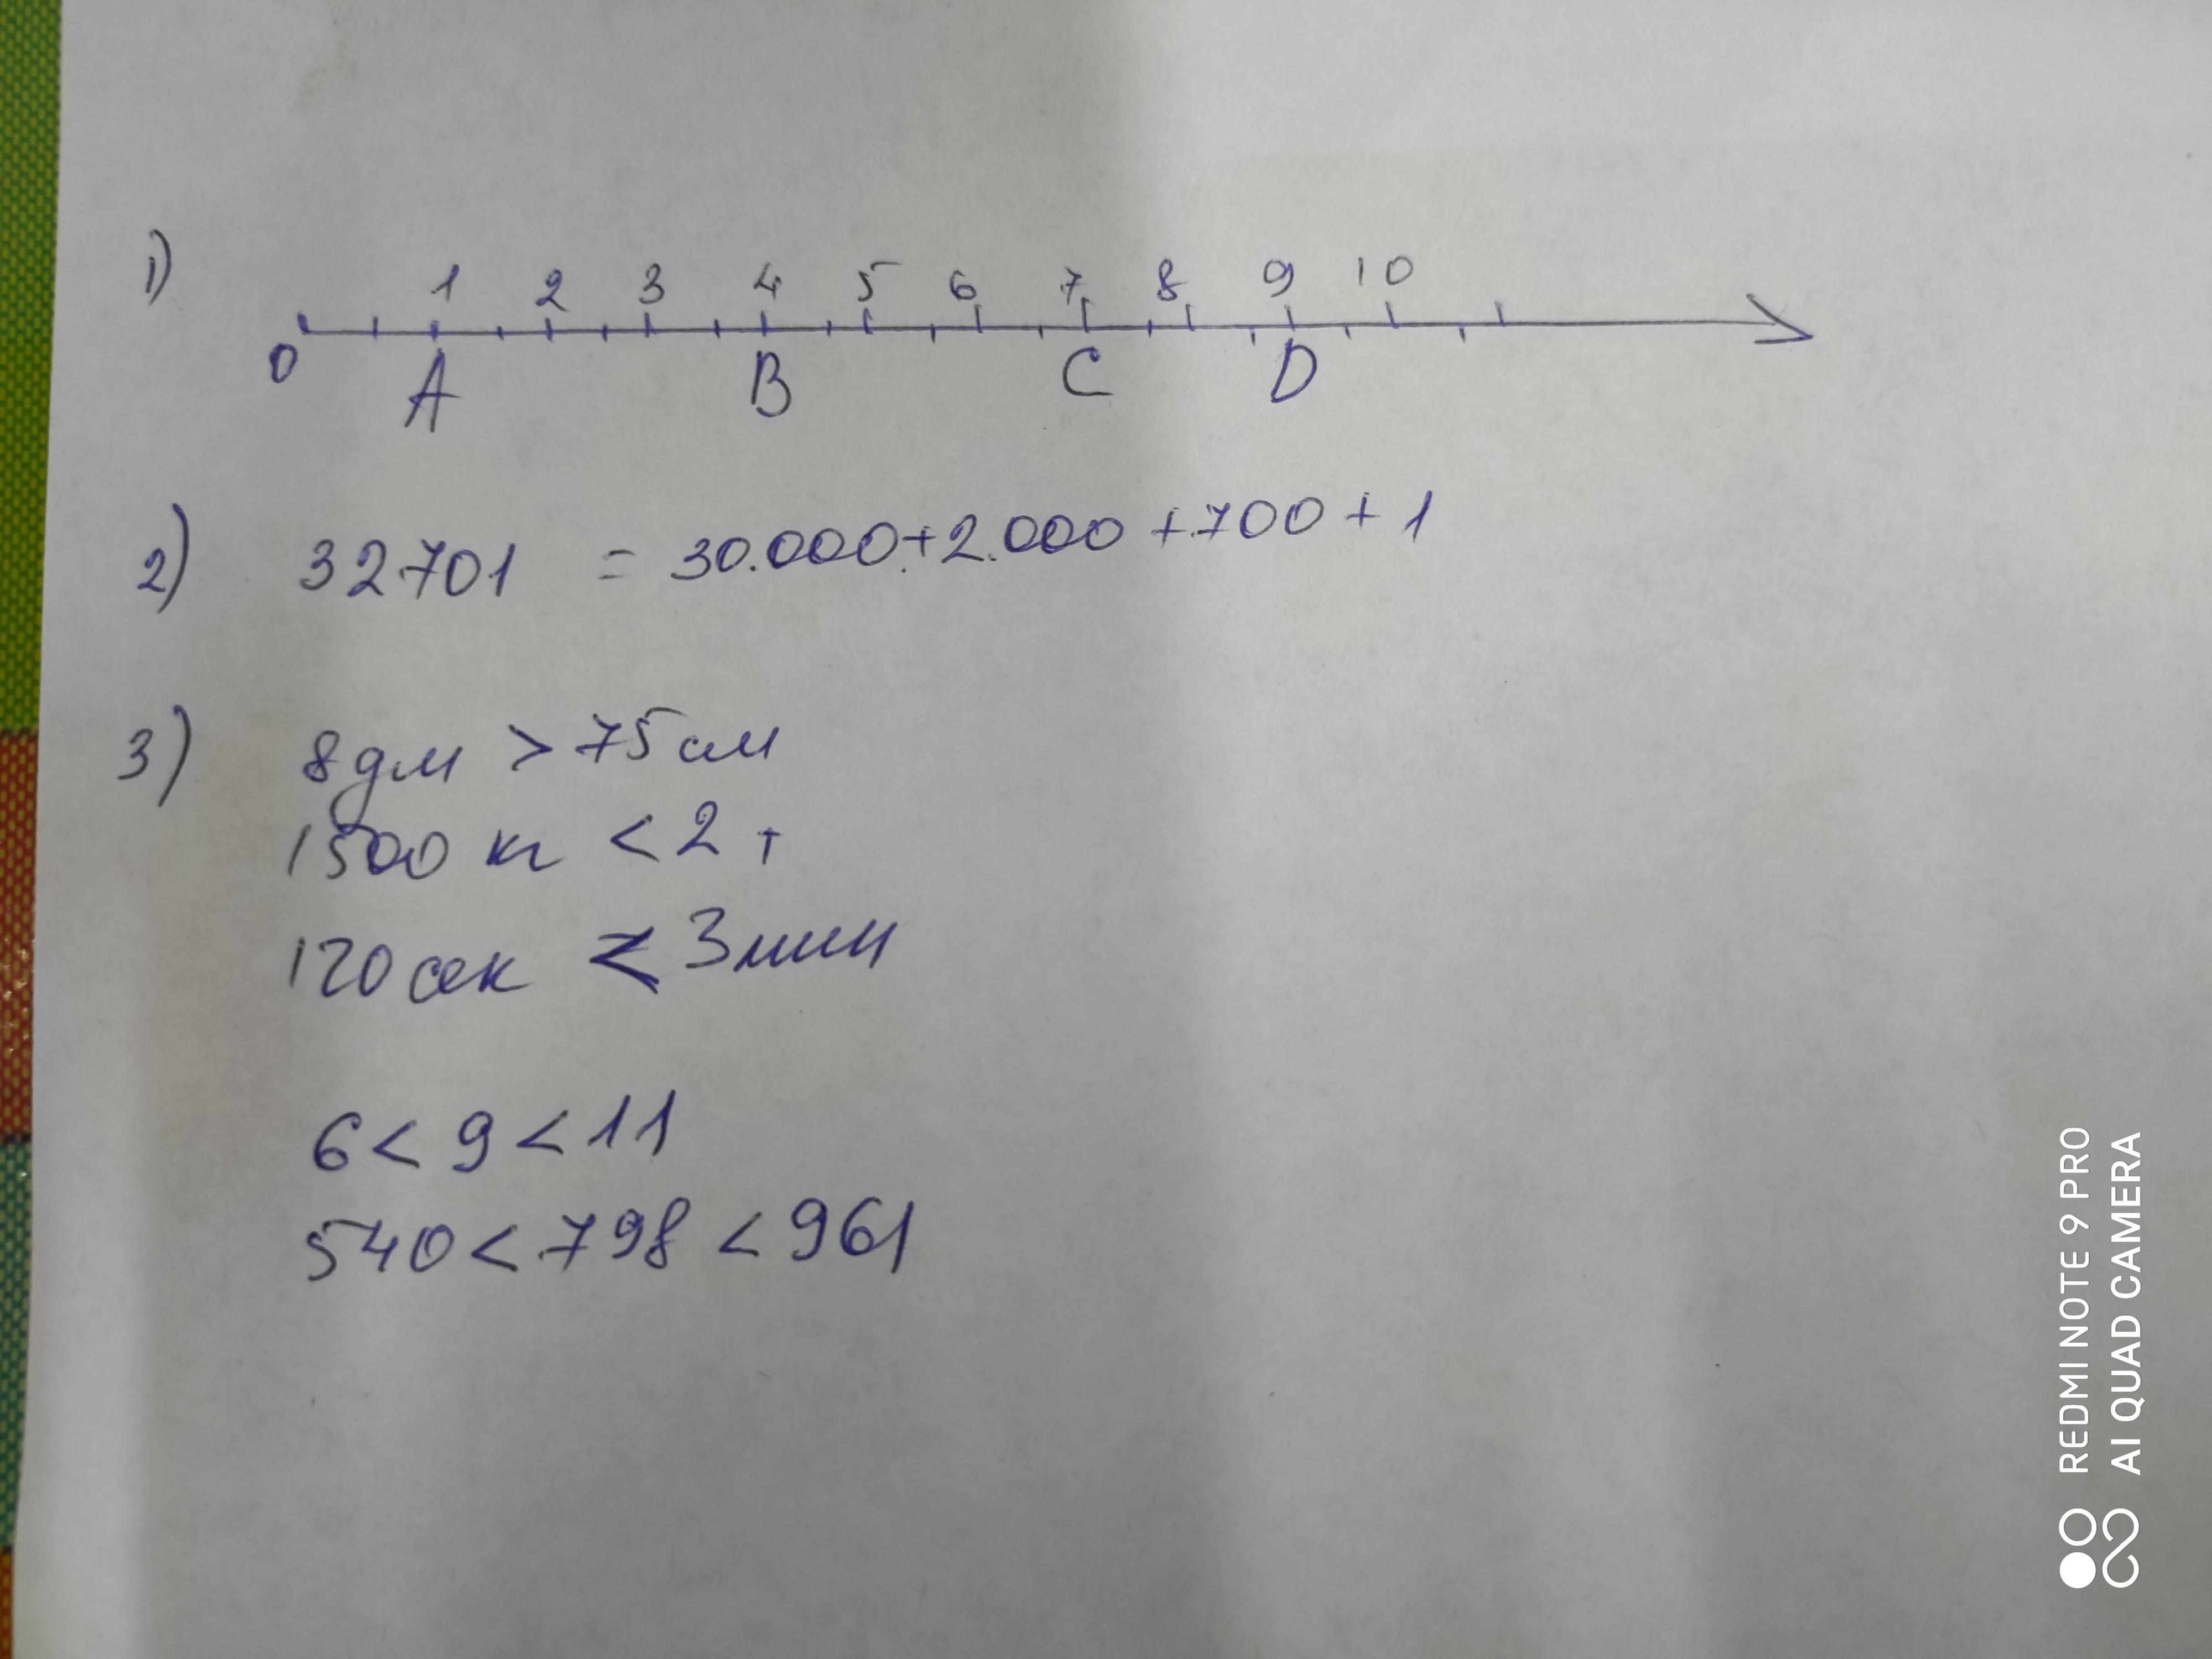 1) 1 2 3 4 5 6 7 8 9 10
0 A B C D
2) 32701 = 30.000+2.000+700+1
3) 8дм > 75см
1500 кг < 2 т
120сек < 3мин
6 < 9 < 11
540 < 798 < 961
REDMI NOTE 9 PRO
AI QUAD CAMERA